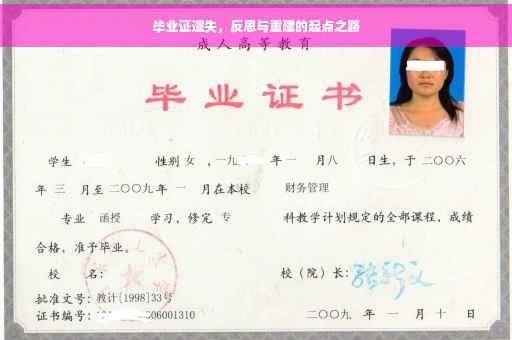 毕业证遗失，反思与重建的起点之路
成人高等教育
毕业证书
学生 性别 女 ，一九 年 一 月八 日生，于 二〇〇六
年 三 月至 二〇〇九 年 一 月在本校 财务管理
专业 函授 学习，修完 专 科教学计划规定的全部课程，成绩
合格，准予毕业。
校 名： 校（院）长：
批准文号：教计[1998]33号
证书编号： 06001310 二〇〇九 年 一 月 十 日